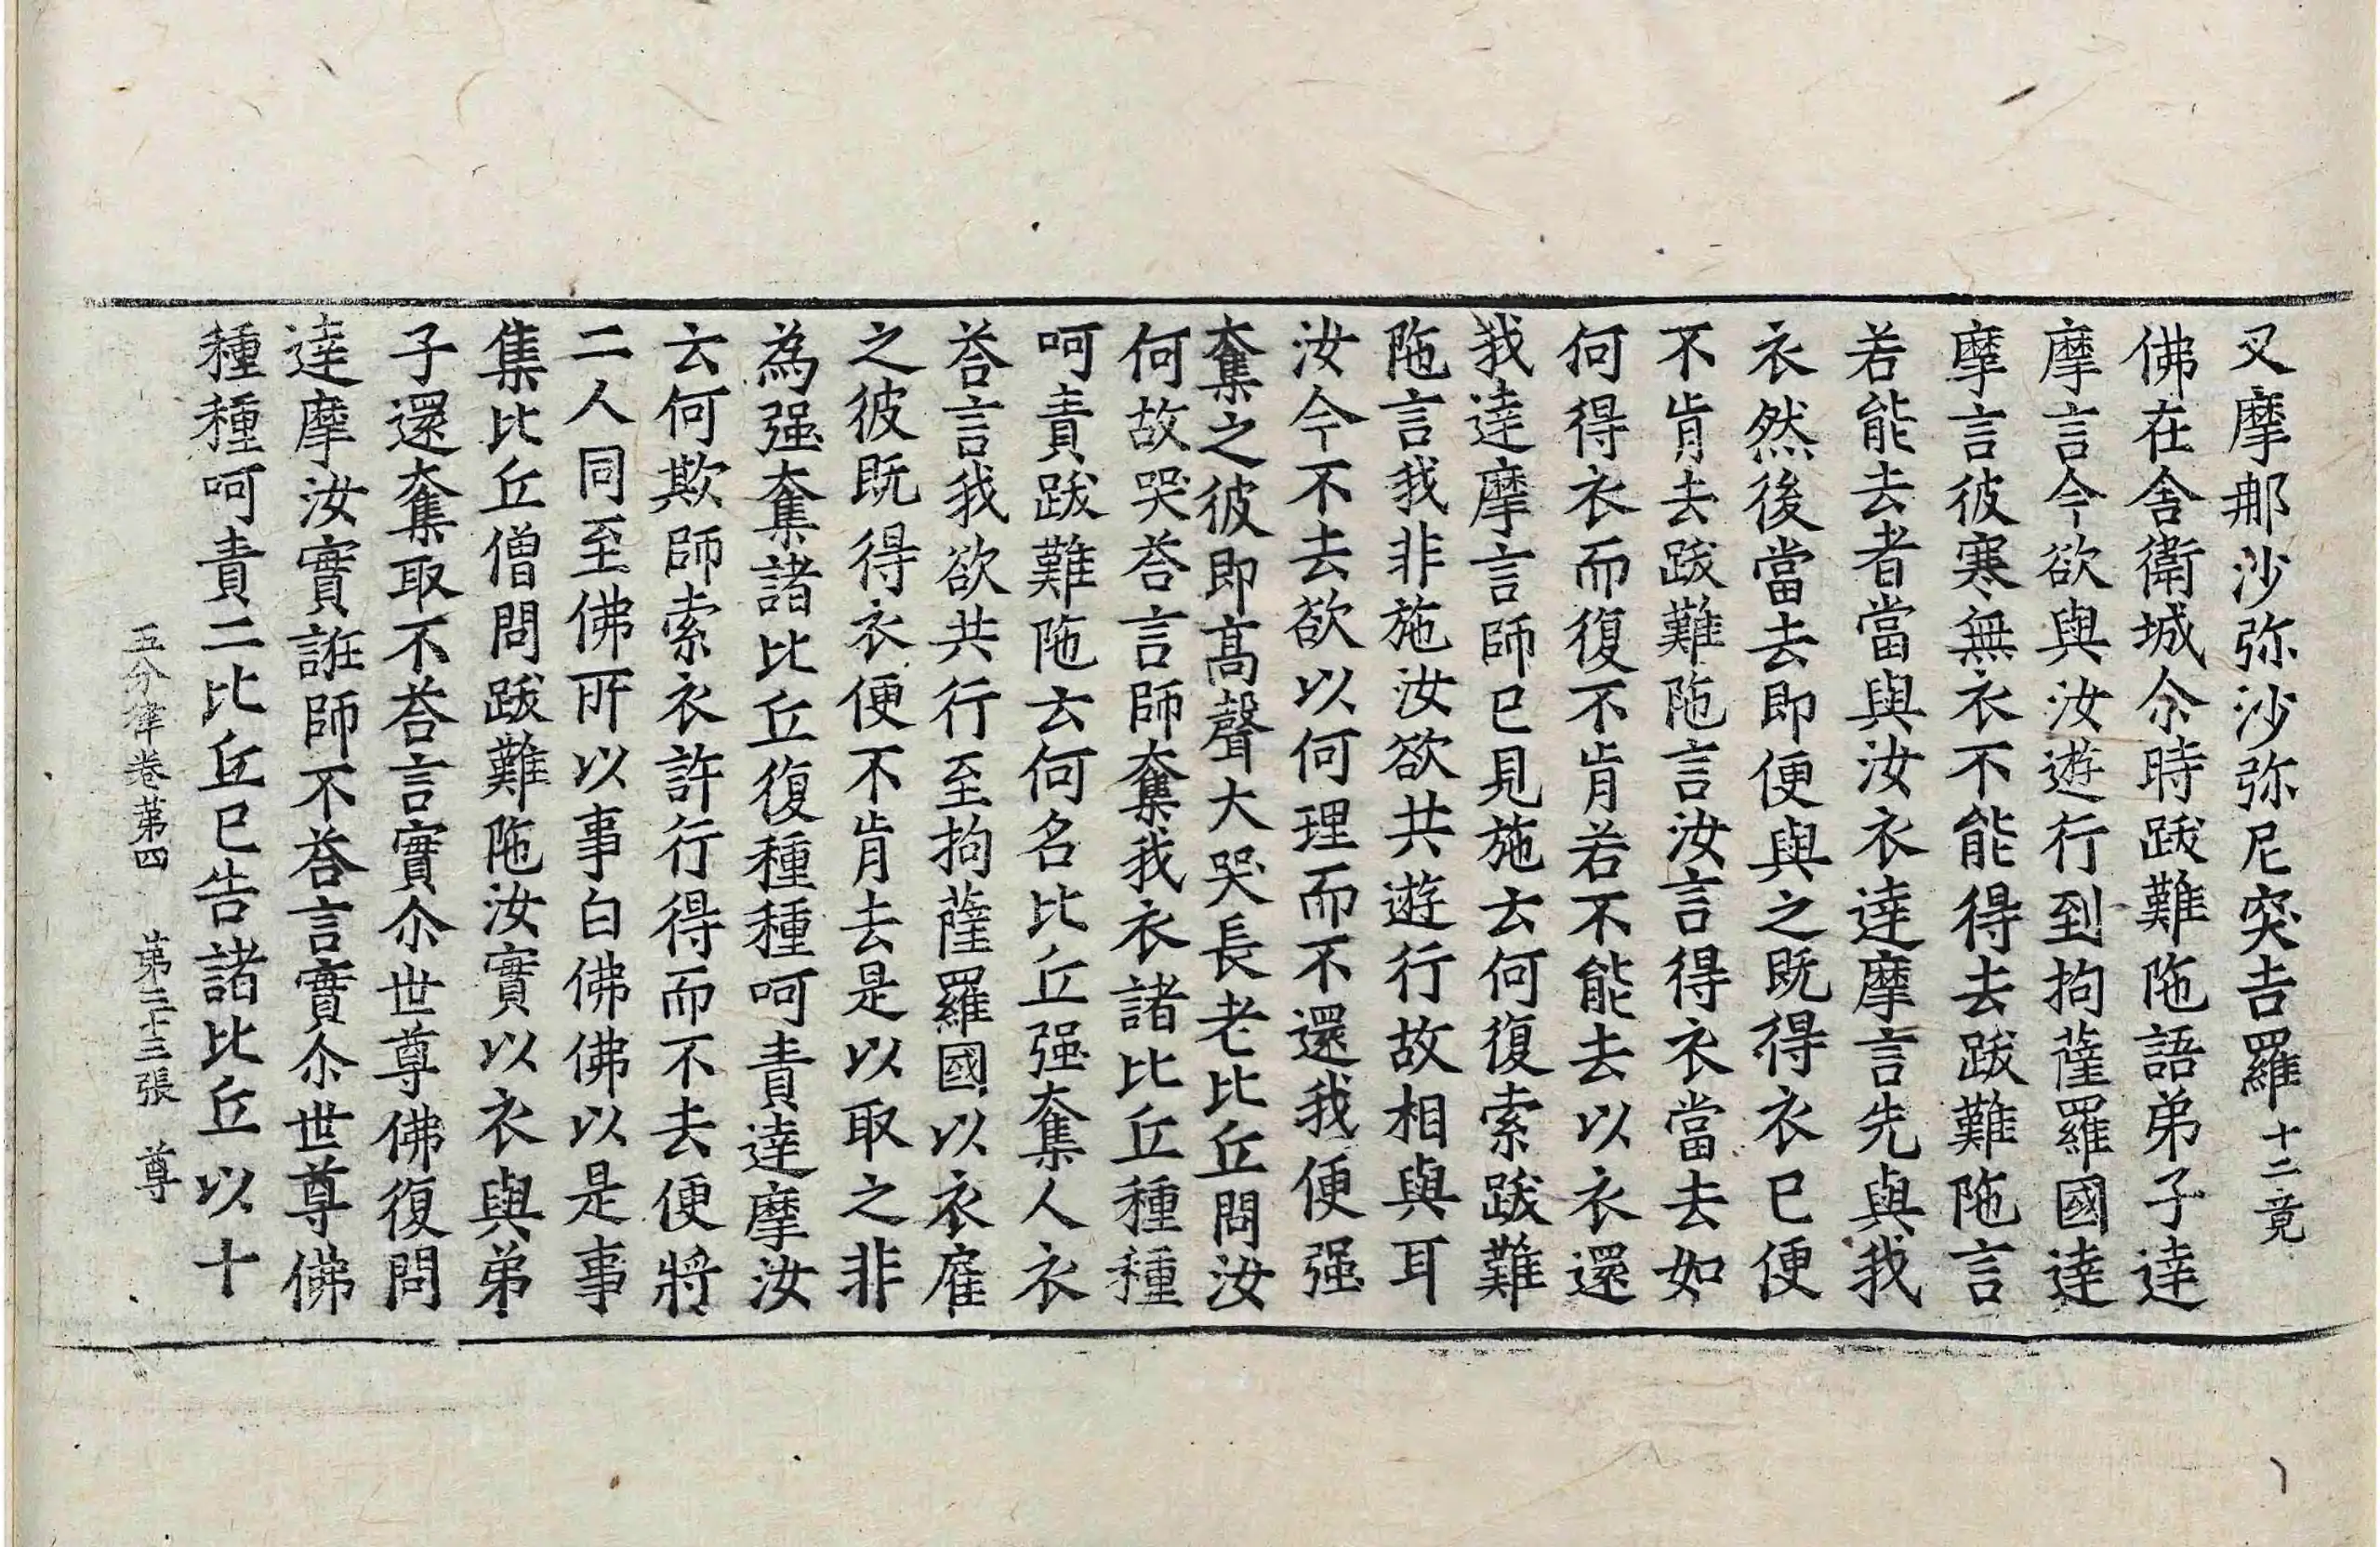 叉摩那沙弥沙弥尼突吉羅十二竟
佛在舍衛城尒時跋難陁語弟子達
摩言今欲與汝遊行到拘薩羅國達
摩言彼寒無衣不能得去跋難陁言
若能去者當與汝衣達摩言先與我
衣然後當去即便與之既得衣已便
不肯去跋難陁言汝言得衣當去如
何得衣而復不肯若不能去以衣還
我達摩言師已見施云何復索跋難
陁言我非施汝欲共遊行故相與耳
汝今不去欲以何理而不還我便强
奪之彼即高聲大哭長老比丘問汝
何故哭荅言師奪我衣諸比丘種種
呵責跋難陁云何名比丘强奪人衣
荅言我欲共行至拘薩羅國以衣雇
之彼既得衣便不肯去是以取之非
為强奪諸比丘復種種呵責達摩汝
云何欺師索衣許行得而不去便將
二人同至佛所以事白佛佛以是事
集比丘僧問跋難陁汝實以衣與弟
子還奪取不荅言實尒世尊佛復問
達摩汝實誑師不荅言實尒世尊佛
種種呵責二比丘已告諸比丘以十
五分律卷第四 第三十三張 尊